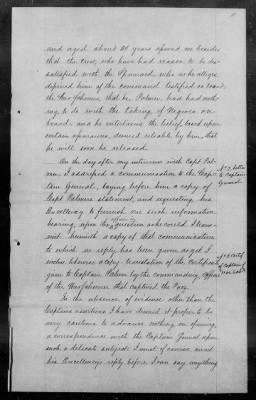 and aged about 21 years aproved me besides
that the crew, who have had reason to be dis-
satisfied with the Spaniard, who as he alleges
deprived him of the command testified on board
the War Schooner that he, Palmer, had had noth-
ing to do with the taking of Negroes on
board, and he entertains the belief based upon
certain assurances, deemed reliable by him, that
he will soon be released.
On the day after my interview with Capt Pal-
mer I addressed a communication to the Cap-
tain General, laying before him a copy of
Capt Palmer's statement, and requesting his
Excellency to furnish me such information
bearing upon the question as he could I trans-
mit herewith a copy of that communication
to which no reply has been given as yet I
enclose likewise a copy translation of the Certificate
given to Captain Palmer by the commanding officer
of the War Schooner that captured the
In the absence of evidence other than the
Captain's assertions I have deemed it proper to be
very cautious to advance nothing in opening
a correspondence with the Captain General upon
such a delicate subject. I must of course await
his Excellency's reply before I can say anything
No 2 letter
to Captain
General
No 3 Certif
of Captain of